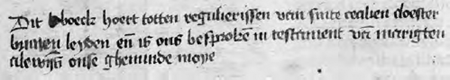 Dit boeck hoert totten regulierissen van sinte cecilien clooster
binnen leyden eñ is ons besproken in testament vā marigten
alewijns onse gheminde moye